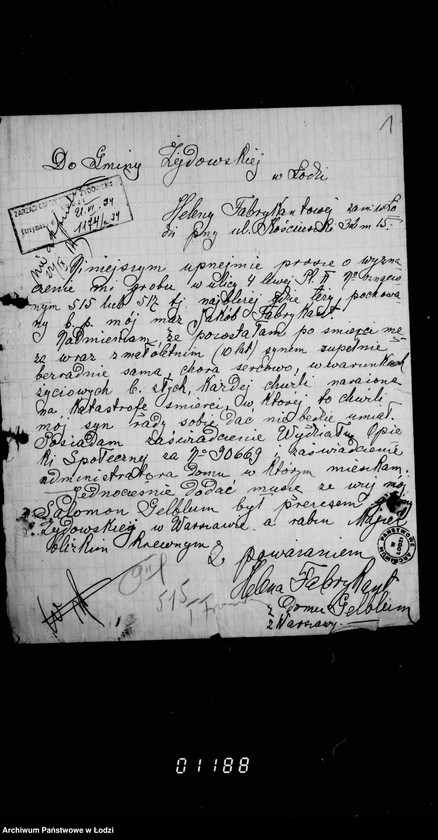 1
Do Gminy Żydowskiej
w Łodzi
ZARZĄD GMINY ŻYDOWSKIEJ
21. VI. 34
1174/34
Heleny Fabrykantowej zamieszka
łej przy ul. Kościuszki 33 m 15.
Niniejszym uprzejmie proszę o wyzna
czenie mi grobu w ulicy 4 lewej
515 lub 517 tj najbliżej gdzie leży pochowa
ny ś. p. mój mąż Jakób Fabrykant
Nadmieniam, że pozostałam po śmierci mę
ża wraz z małoletnim (10 lat) synem zupełnie
bezradnie sama, chora sercowo, w warunkach
życiowych b. złych, każdej chwili narażona
na katastrofę śmierci, w której to chwili
mój syn rady sobie dać nie będzie umiał.
Posiadam zaświadczenie Wydziału Opie
ki Społecznej za Nº 90669 i zaświadczenie
administratora domu w którym mieszkam.
Jednocześnie dodać muszę że wuj mój
Salomon Gelblum był prezesem Gminy
Żydowskiej w Warszawie a rabin
bliskim krewnym
Z poważaniem
Helena Fabrykant
z domu Gelblum
z Warszawy.
515
ARCHIWUM PAŃSTWOWE W ŁODZI
01188
Archiwum Państwowe w Łodzi